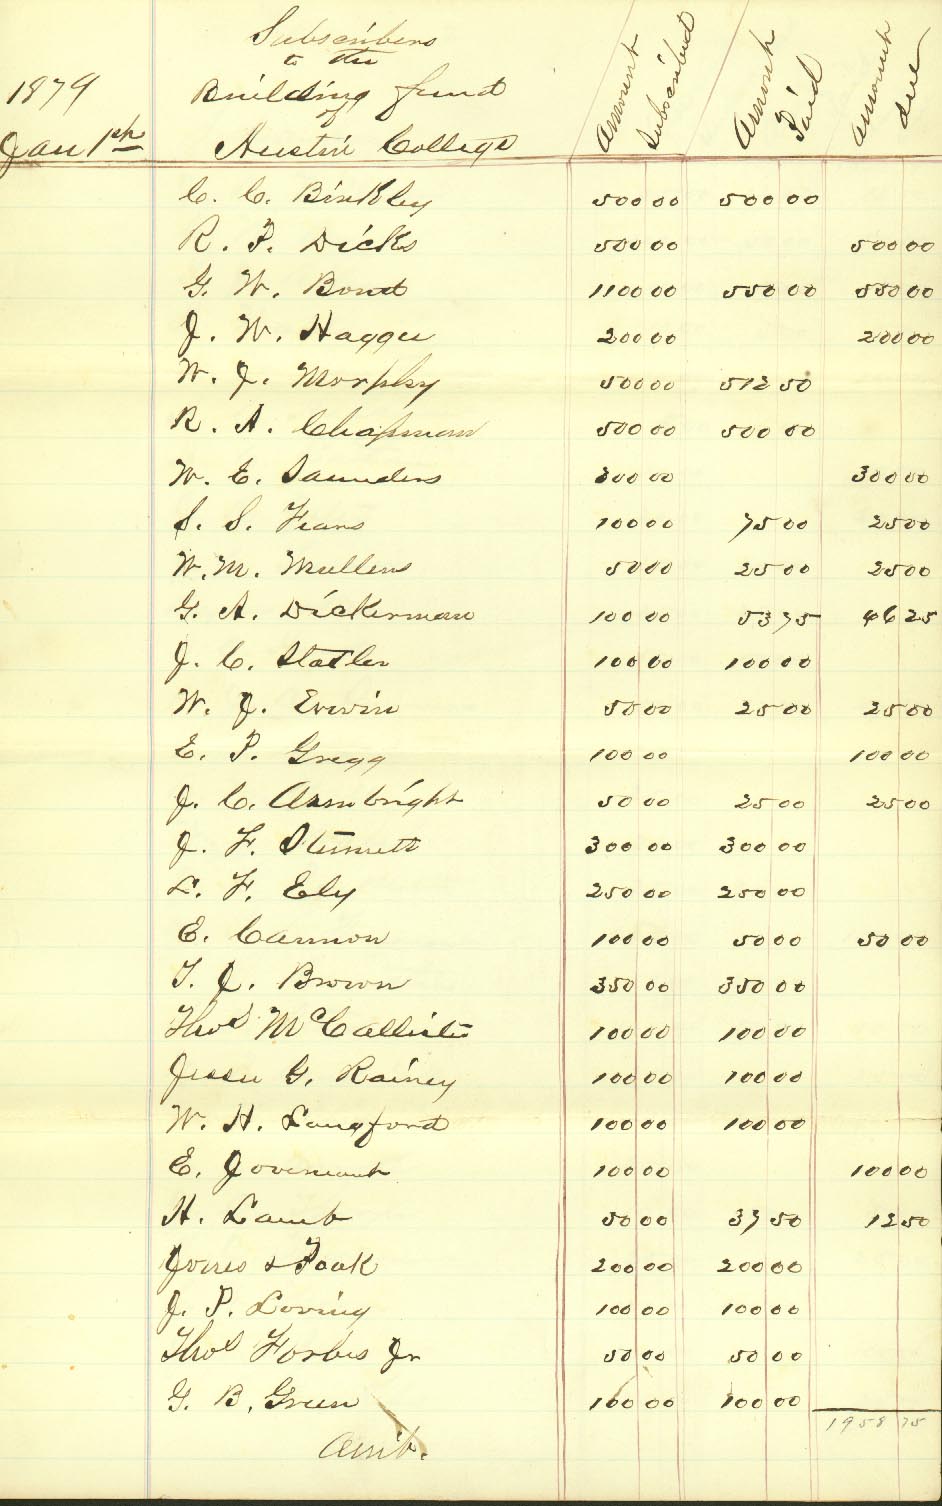 Subscribers
to the
1879 Building fund
of
Jan 1st Austin College
Amount Subscribed Amount Paid Amount due
C. C. Binkley 500 00 500 00
R. P. Dicks 500 00 500 00
G. W. Bond 1100 00 550 00 550 00
J. W. Haggee 200 00 200 00
W. J. Morphy 500 00 512 50
R. A. Chapman 500 00 500 00
W. E. Saunders 300 00 300 00
S. S. Fears 100 00 75 00 25 00
W. M. Mullens 50 00 25 00 25 00
G. A. Dickerman 100 00 53 75 46 25
J. C. Statler 100 00 100 00
W. J. Erwin 50 00 25 00 25 00
E. P. Gregg 100 00 100 00
J. C. Armbright 50 00 25 00 25 00
J. F. Stinnett 300 00 300 00
L. F. Ely 250 00 250 00
E. Cannon 100 00 50 00 50 00
T. J. Brown 350 00 350 00
Thos McCallister 100 00 100 00
Jesse G. Rainey 100 00 100 00
W. H. Langford 100 00 100 00
E. 100 00 100 00
H. Lamb 50 00 37 50 12 50
Jones & 200 00 200 00
J. P. Loving 100 00 100 00
Thos Forbes Jr 50 00 50 00
G. B. Green 100 00 100 00
1958 75